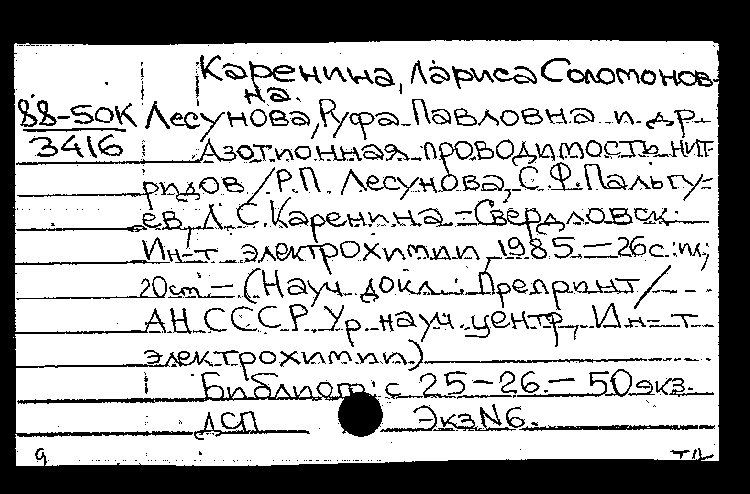 Каренина, Лариса Соломонов-
на.
88-50К Лесунова, Руфа Павловна и др.
3416 Азотионная проводимость нит-
ридов / Р.П. Лесунова, С.Ф. Пальгу-
ев, Л.С. Каренина. – Свердловск:
Ин-т электрохимии, 1985. – 26с.: ил.;
20см – (Науч. докл.: Препринт /
АН СССР. Ур. науч. центр, Ин-т
электрохимии)
Библиогр.: с 25-26. – 50 экз.
ДСП Экз N6.
9